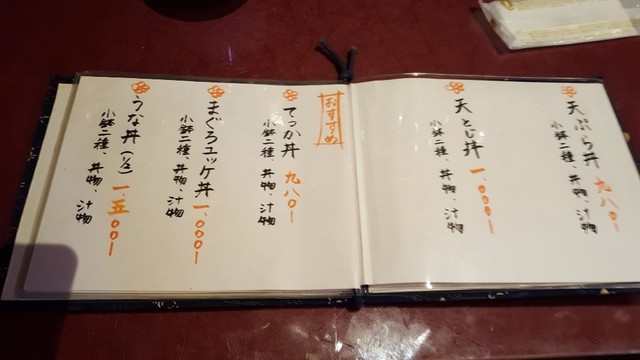 天ぷら丼 九八〇ー
小鉢二種、丼物、汁物
天とじ丼 一、〇〇〇ー
小鉢二種、丼物、汁物
おすすめ
てっか丼 九八〇ー
小鉢二種、丼物、汁物
まぐろユッケ丼 一、〇〇〇ー
小鉢二種、丼物、汁物
うな丼（1/2） 一、五〇〇ー
小鉢二種、丼物、汁物